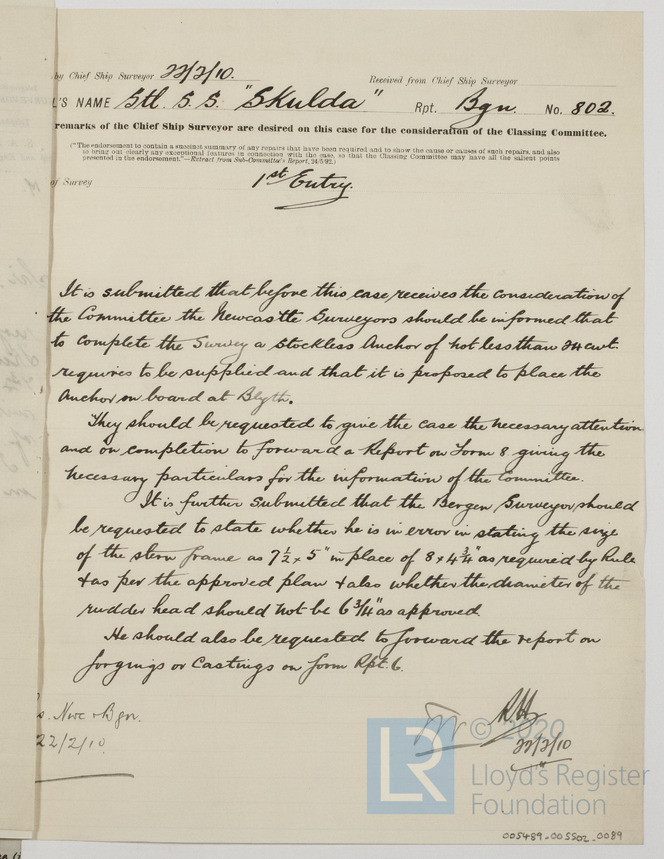 by Chief Ship Surveyor 22/2/10. Received from Chief Ship Surveyor
L'S NAME Stl. S.S. "Skulda" Rpt. Bgn. No. 802.
remarks of the Chief Ship Surveyor are desired on this case for the consideration of the Classing Committee.
("The endorsement to contain a succinct summary of any repairs that have been required and to show the cause or causes of such repairs, and also
to bring out clearly any exceptional features in connection with the case, so that the Classing Committee may have all the salient points
presented in the endorsement."—Extract from Sub-Committee's Report, 24/5/92.)
of Survey 1st Entry.
It is submitted that before this case receives the consideration of
the Committee the Newcastle Surveyors should be informed that
to complete the Survey a Stockless Anchor of not less than 24 cwt.
requires to be supplied and that it is proposed to place the
Anchor on board at Blyth.
They should be requested to give the case the necessary attention
and on completion to forward a Report on Form 8 giving the
necessary particulars for the information of the Committee.
It is further submitted that the Bergen Surveyor should
be requested to state whether he is in error in stating the size
of the stern frame as 7½ x 5" in place of 8 x 4¾" as required by Rule
& as per the approved plan & also whether the diameter of the
rudder head should not be 6¾" as approved.
He should also be requested to forward the report on
forgings or Castings on form Rpt. 6.
s. Nwc & Bgn.
22/2/10.
22/2/10
© 2020
LR
Lloyd's Register
Foundation
005489-005502-0089